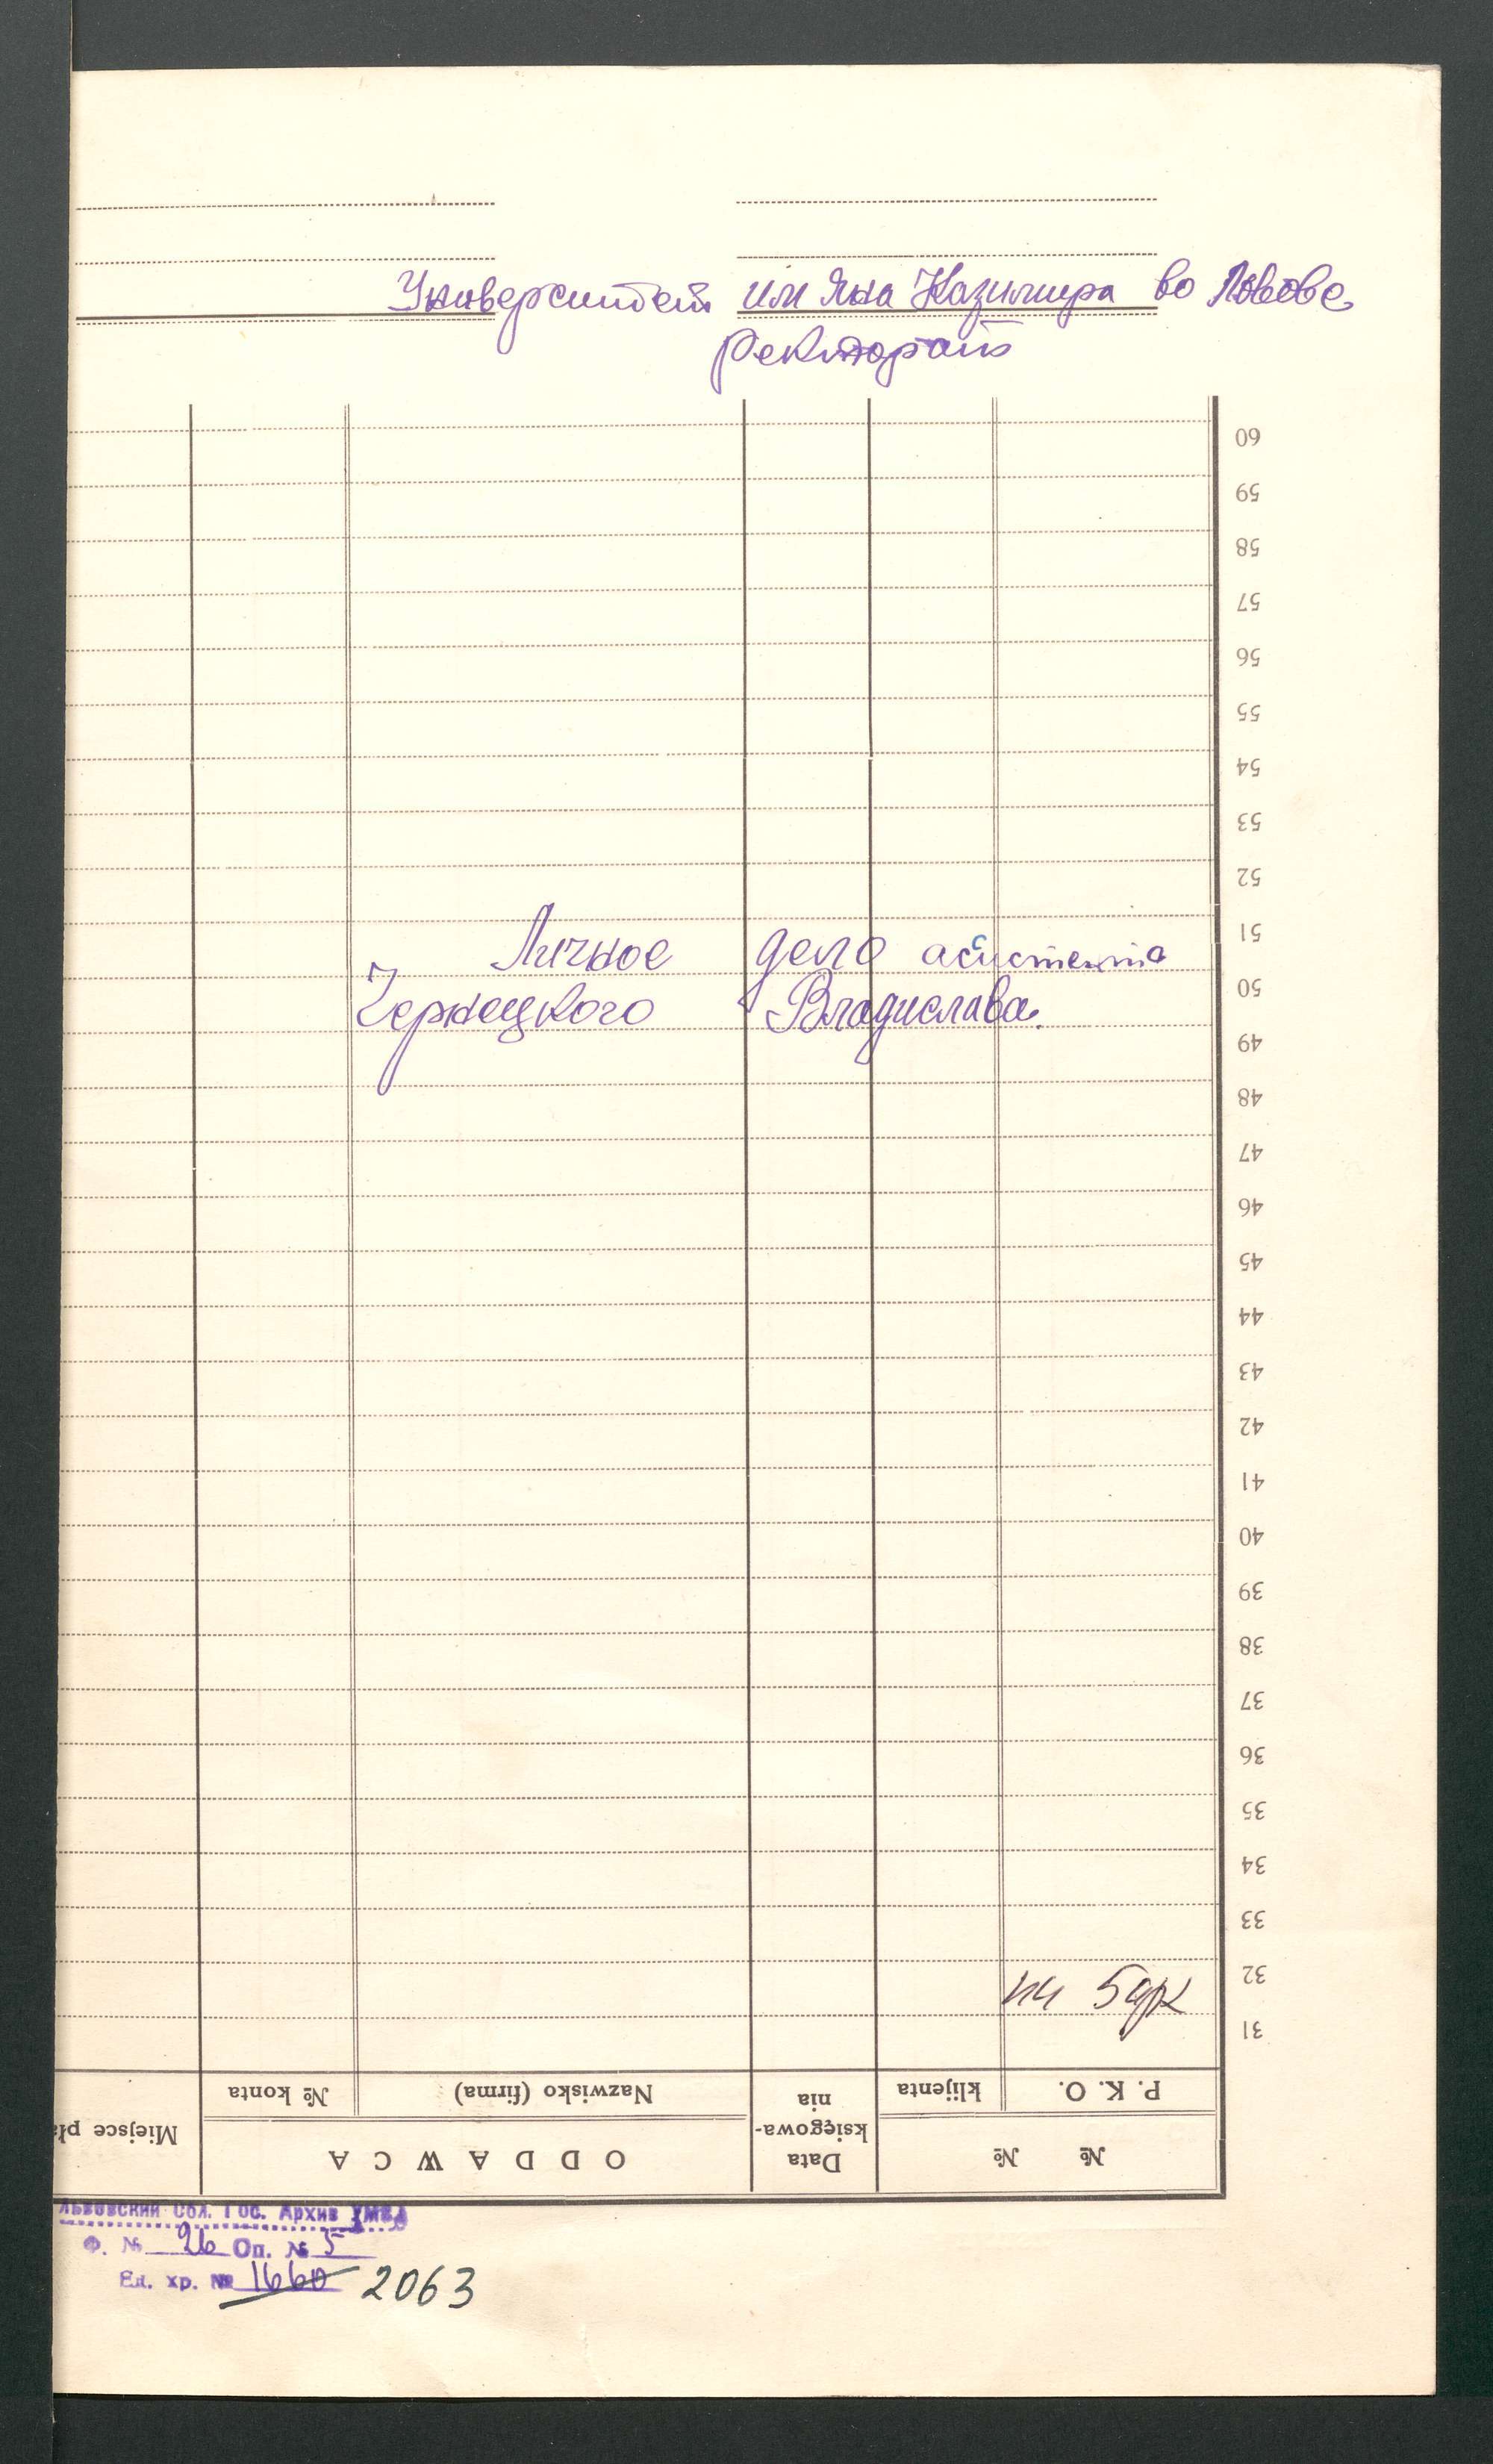 Университет им Яна Казимира во Львове
Ректорат
60
59
58
57
56
55
54
53
52
51
Личное дело ассистента
50
Чернецкого Владислава.
49
48
47
46
45
44
43
42
41
40
39
38
37
36
35
34
33
32
31
P. K. O.
klijenta
Data księgowa-
nia
Nazwisko (firma)
№ konta
Miejsce pła
№ №
ODDAWCA
Львовский Обл. Гос. Архив УМВД
Ф. № 26 Оп. № 5
Ед. хр. № 1660 2063